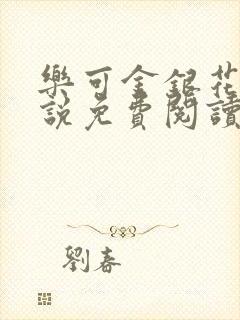 樂可金銀花
說免費閱讀
劉春